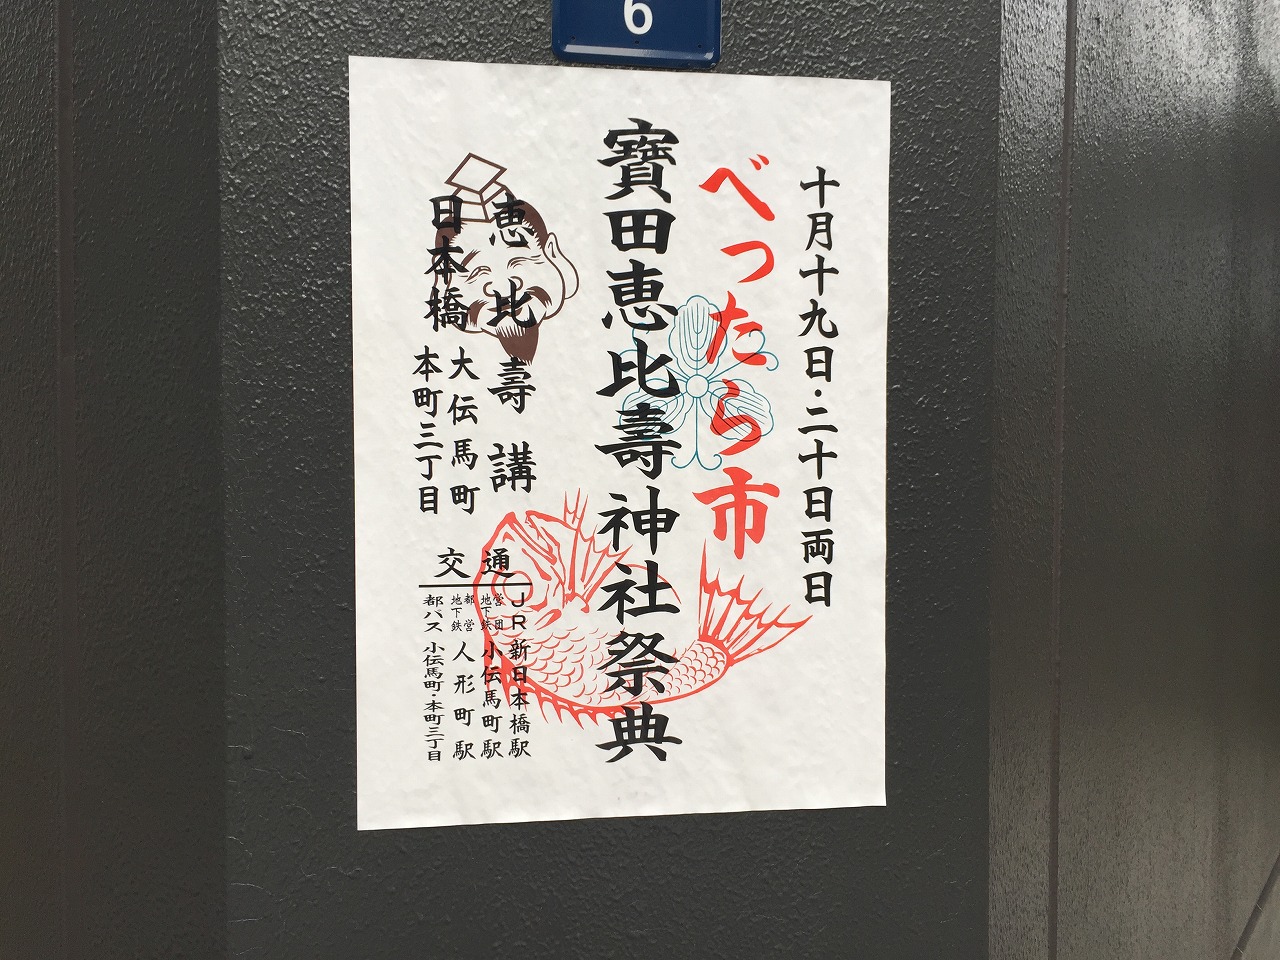 6
十月十九日・二十日両日
べったら市
寶田恵比壽神社祭典
恵比壽講
日本橋
大伝馬町
本町三丁目
交通
JR新日本橋駅
営団地下鉄小伝馬町駅
都営地下鉄人形町駅
都バス小伝馬町・本町三丁目